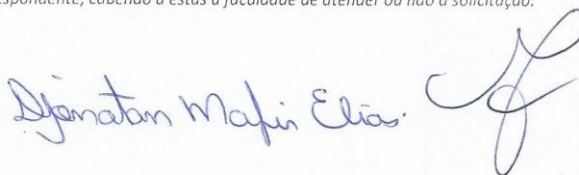 espondente, cabendo a estas a faculdade de atender ou não a solicitação.
Djonatan Mafin Elias.